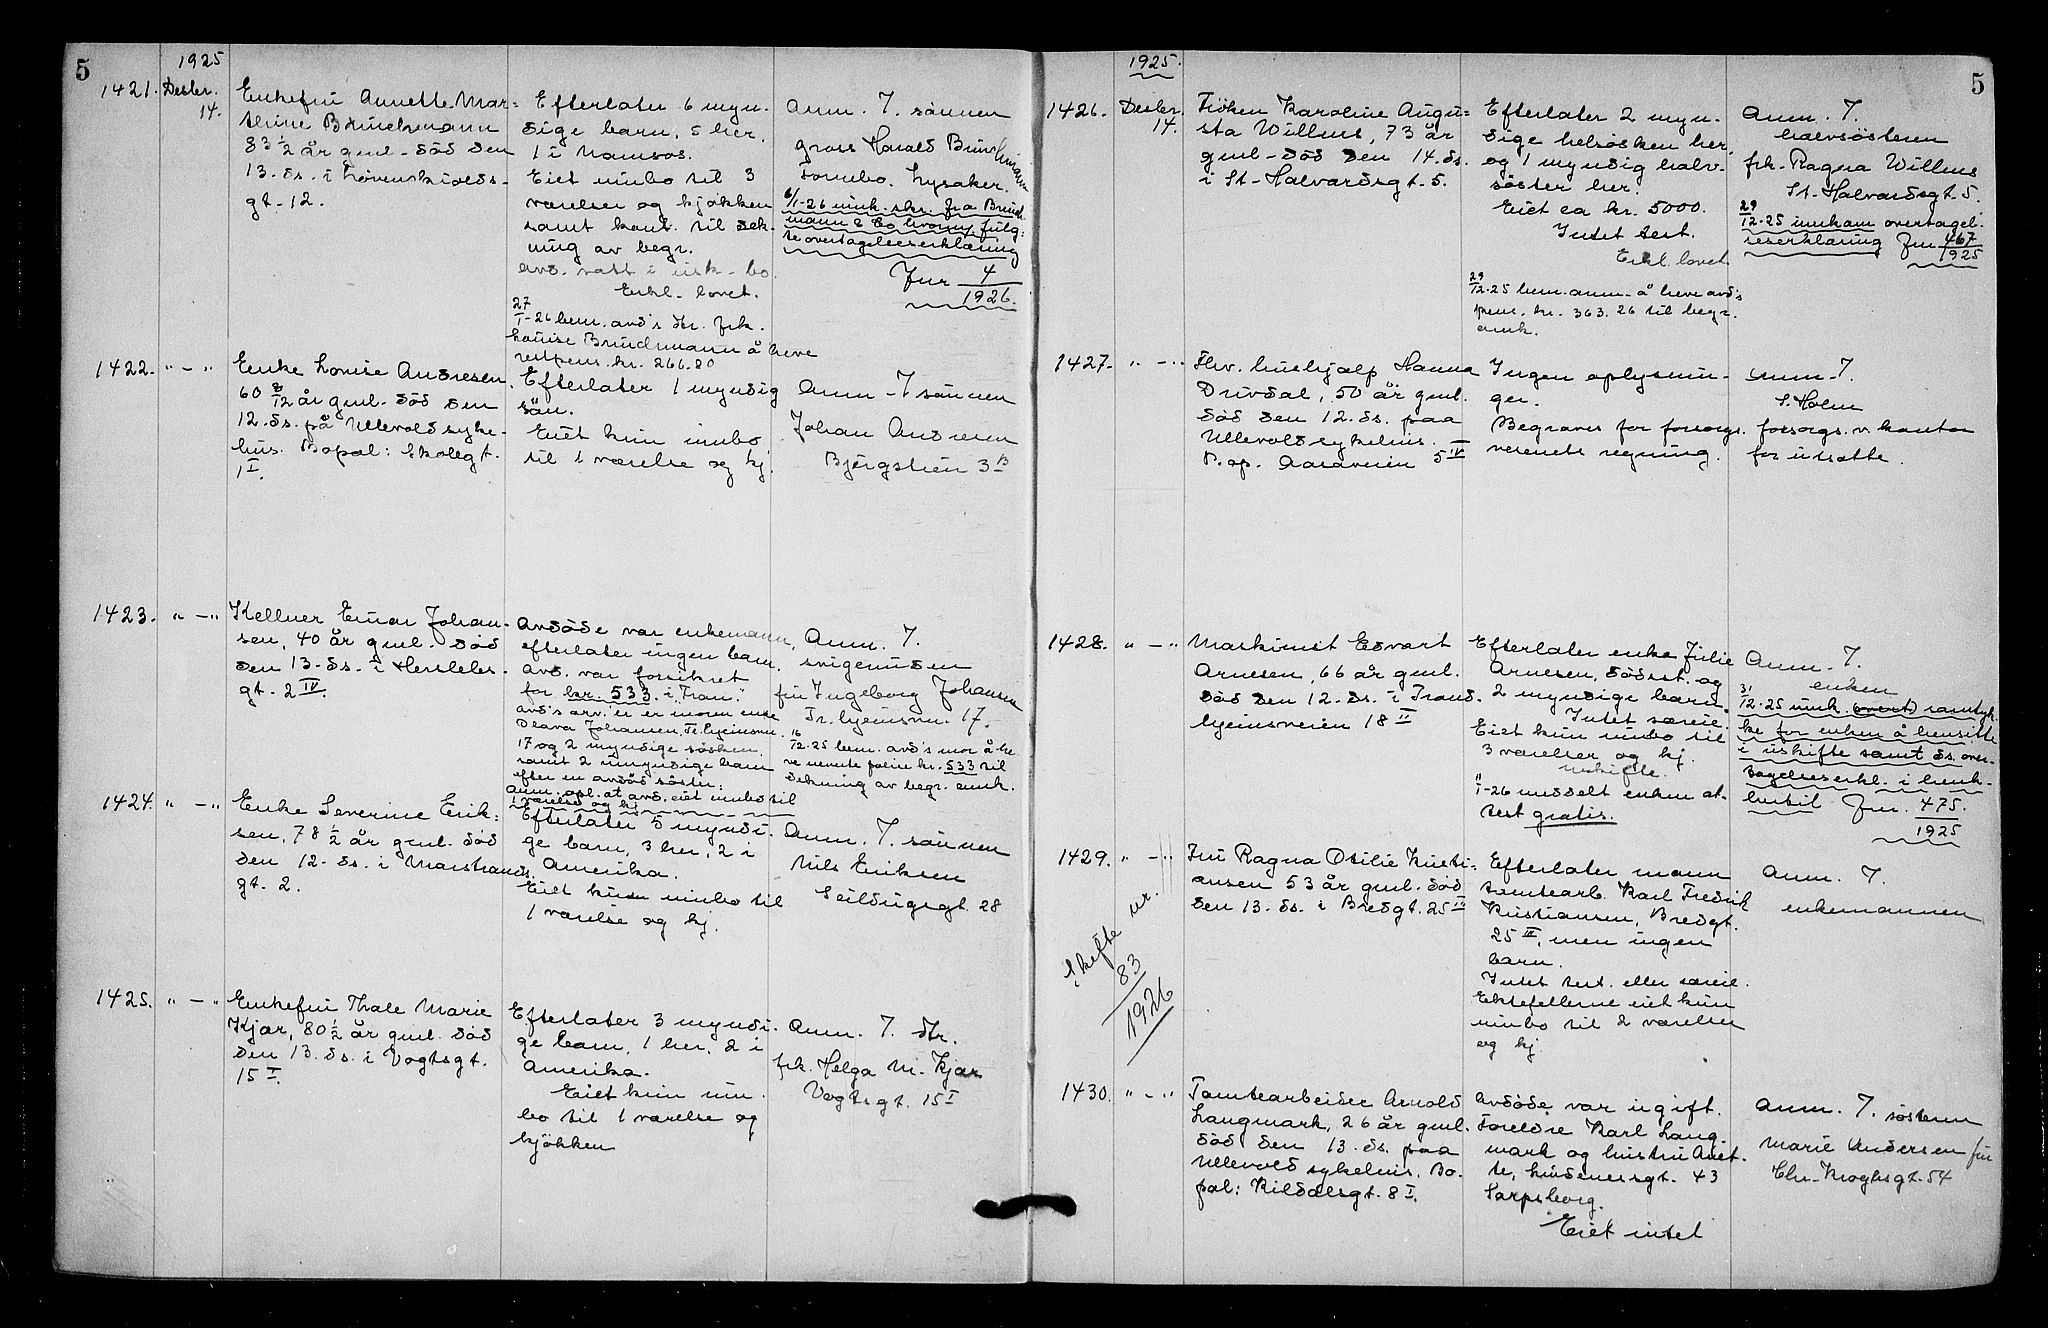 5
1925
1421. Desbr.
14.
Enkefru Annette Mar-
thine Brinchmann
83 1/2 år gml. død den
13. ds. i Løvenskiolds-
gt. 12.
Efterlater 6 myn-
dige barn, 5 her,
1 i Namsos.
Eiet innbo til 3
værelser og kjøkken
samt kont. til dek-
ning av begr.
avd. satt i uisk. bo.
Erkl. lovet.
27/1-26 bem. avd's dtr. frk.
Louise Brinchmann å heve
restpens. kr. 266.80
Anm. J. sønnen
gross Harald Brinchmann
Fornebo. Lysaker.
6/1-26 innk. skr. fra Brinch-
mann & Co
overtagelseserklæring
Jnr 4/1926.
1422. " — "
Enke Lovise Andresen
60 8/12 år gml. død den
12. ds. på Ullevold syke-
hus. Bopæl: Skolegt.
1 I.
Efterlater 1 myndig
søn.
Eiet kun innbo
til 1 værelse og kj.
Anm. J sønnen
Johan Andresen
Bjergstien 3 B
1423. " — "
Kellner Einar Johan-
sen, 40 år gml. død
den 13. ds. i Herslebs-
gt. 2 IV.
Avdøde var enkemann,
efterlater ingen barn.
Avd. var forsikret
for kr. 533 i "Fram".
avd's arv. er moren enke
Johansen, Tr.hjemsvn.
17 og 2 myndige søsken,
samt 2 umyndige barn
efter en avdød søster.
Anm. opl. at avd. eiet innbo til
1 værelse og kj.
Anm. J.
svigerinden
fru Ingeborg Johansen
Tr. hjemsvn. 17.
16/12-25 bem. avd's mor å he-
ve nevnte police kr. 533 til
dekning av begr. omk.
1424. " — "
Enke Severine Erik-
sen, 78 1/2 år gml. død
den 12. ds. i Marstrands-
gt. 2.
Efterlater 5 myndi-
ge barn, 3 her, 2 i
Amerika.
Eiet kun innbo til
1 værelse og kj.
Anm. J. sønnen
Nils Eriksen
Seilduksgt. 28
1425. " — "
Enkefru Thale Marie
Kjær, 80 1/2 år gml. død
den 13. ds. i Vogtsgt.
15 I.
Efterlater 3 myndi-
ge barn, 1 her, 2 i
Amerika.
Eiet kun inn-
bo til 1 værelse og
kjøkken
Anm. J. dtr.
frk. Helga M. Kjær
Vogtsgt. 15 I
5
1925.
1426. Desbr.
14.
Frøken Karoline Augu-
sta Willens, 73 år
gml. død den 14. ds.
i St. Halvardsgt. 5.
Efterlater 2 myn-
dige helsøsken her,
og 1 myndig halv-
søster her.
Eiet ca kr. 5000.
Intet test.
Erkl. lovet
29/12-25 bem. anm. å heve avd's
pens. kr. 363.26 til begr.
omk.
Anm. J.
halvsøsteren
frk. Ragna Willens
St. Halvardsgt. 5.
29/12-25 innkom overtagel-
seserklæring Jnr 467/1925
1427. " — "
Fhv. hushjælp Hanna
Drivdal, 50 år gml.
død den 12. ds. paa
Ullevold sykehus.
Bop. Aasaveien 5 IV
Ingen oplysnin-
ger.
Begraves for forsorgs-
vesenets regning.
Anm. J.
S. Holm
forsorgsv. kontor
for utsatte.
1428. " — "
Maskinist Edvart
Arnesen, 66 år gml.
død den 12. ds. i Trond-
hjemsveien 18 II
Efterlater enke Julie
Arnesen, dødsst. og
2 myndige barn.
Intet særeie
Eiet kun innbo til
3 værelser og kj.
uskifte.
11/1-26 meddelt enken at-
test gratis.
Anm. J.
enken
31/12-25 innk. samtyk-
ke for enken å hensitte
i uskifte samt ds. over-
tagelseserkl. i henh.
hertil Jnr. 475./1925
1429. " — "
Skifte nr. 83/1926
Fru Ragna Otilie Kristi-
ansen 53 år gml. død
den 13. ds. i Bredgt. 25 III
Efterlater mann
tomtearb. Karl Fredrik
Kristiansen, Bredgt.
25 III, men ingen
barn.
Intet test. eller særeie.
Ektefellerne eiet kun
innbo til 2 værelser
og kj.
Anm. J.
enkemannen
1430. " — "
Tomtearbeider Arnold
Langmark, 26 år gml.
død den 13. ds. paa
Ullevold sykehus. Bo-
pæl: Kildalsgt. 8 I.
Avdøde var ugift.
Foreldre Karl Lang-
mark og hustru Anet-
te, 43
Sarpsborg.
Eiet intet
Anm. J. søsteren
Marie Andersen fru
Chr. Kroghsgt. 54